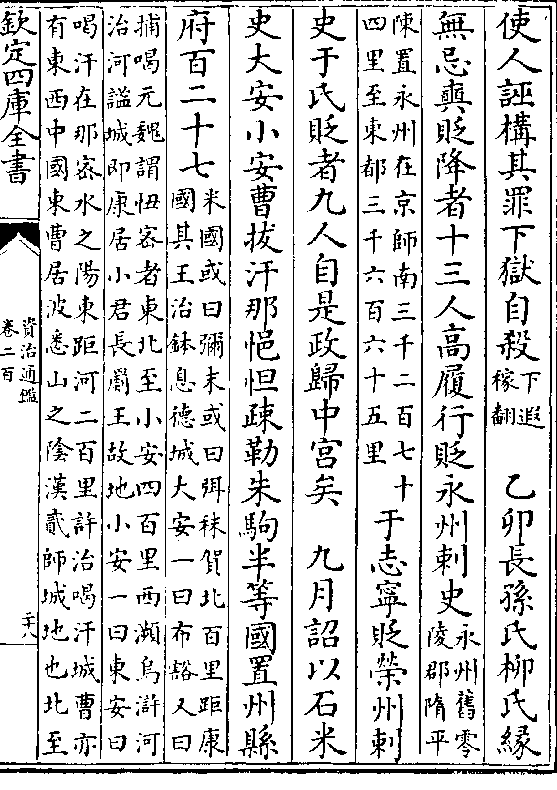 使人誣構其罪下獄自殺下遐
稼翻　乙卯長孫氏柳氏緣
無忌奭貶降者十三人高履行貶永州刺史永州舊零
陵郡隋平
陳置永州在京師南三千二百七十
四里至東都三千六百六十五里　于志寧貶榮州刺
史于氏貶者九人自是政歸中宮矣　九月詔以石米
史大安小安曹拔汗那悒怛疎勒朱駒半等國置州縣
府百二十七米國或曰彌末或曰弭秣賀北百里距康
國其王治鉢息德城大安一曰布豁又曰
捕喝元魏謂忸密者東北至小安四百里西瀕烏滸河
治河謐城即康居小君長罽王故地小安一曰東安曰
喝汗在那密水之陽東距河二百里許治喝汗城曹亦
有東西中國東曹居波悉山之陰漢貳師城地也北至
欽定四庫全書
資治通鑑
卷二百
二十八